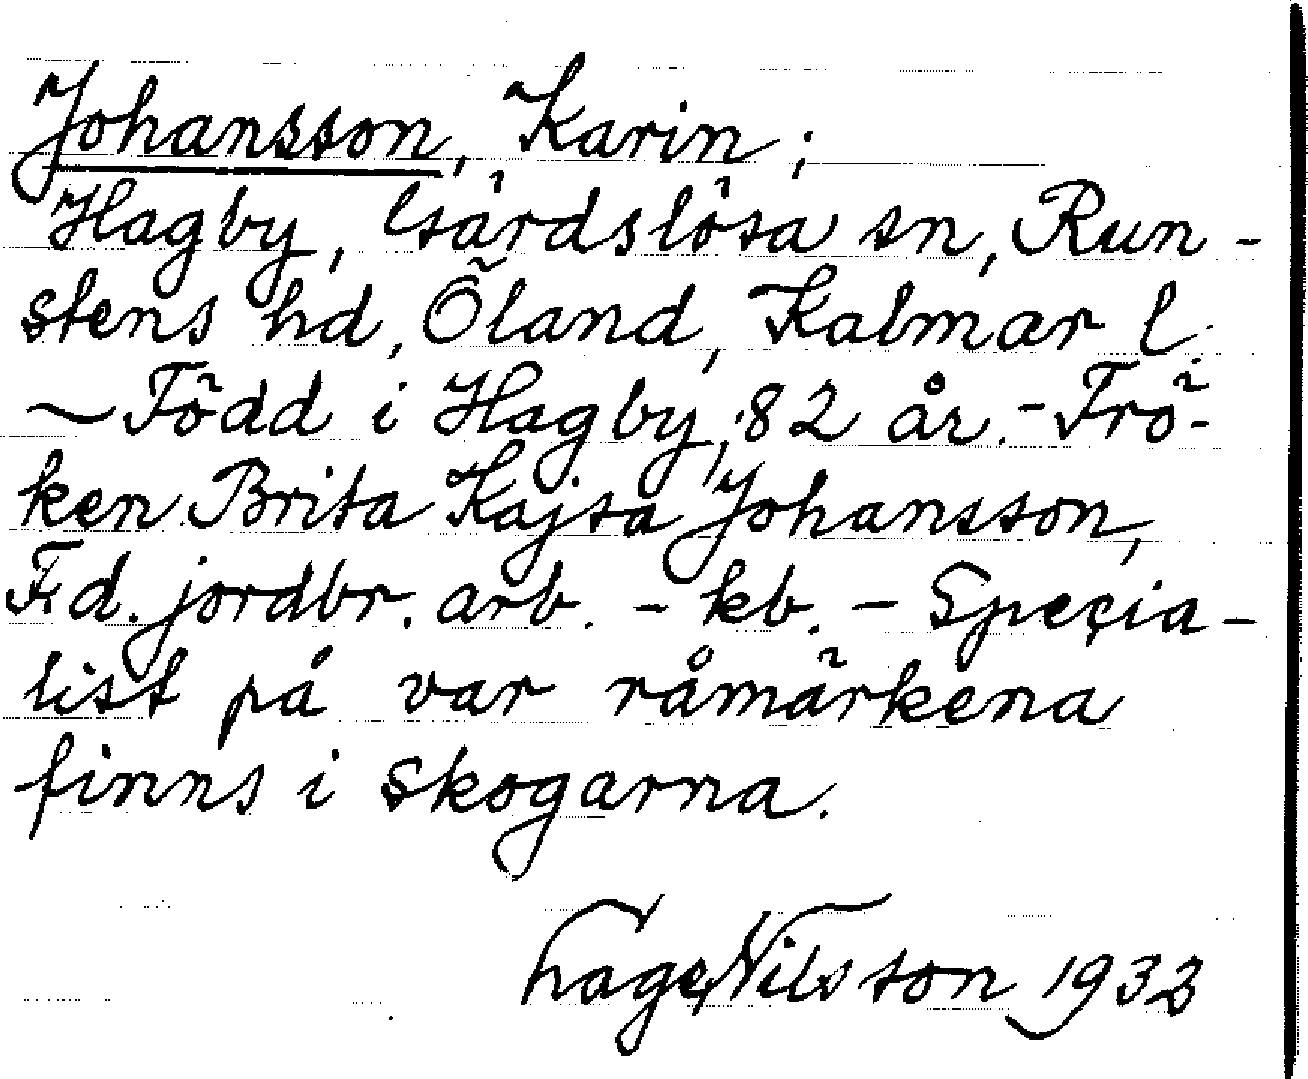 Johansson, Karin;
Hagby, Gärdslösa sn, Run-
stens hd, Öland, Kalmar l.
— Född i Hagby, 82 år. - Frö-
ken Brita Kajsa Johansson,
Fd. jordbr. arb. - kb. - Specia-
list på var råmärkena
finns i skogarna.
Nilsson 1933